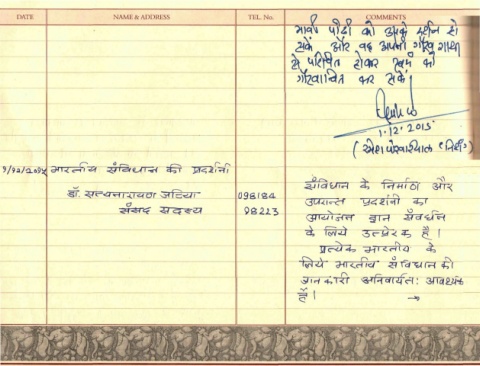 DATE NAME & ADDRESS TEL. No. COMMENTS
भावी पीढ़ी को आपके दर्शन हो
सकें और वह अपनी गौरव गाथा
से परिचित होकर स्वयं को
गौरवान्वित कर सके।
1.12.2015
भारतीय संविधान की प्रदर्शनी
डॉ. सत्यनारायण जटिया
संसद सदस्य
098184
98223
संविधान के निर्माण और
उपरान्त प्रदर्शनी का
आयोजन ज्ञान संवर्धन
के लिये उत्प्रेरक है।
प्रत्येक भारतीय के
लिये भारतीय संविधान की
जानकारी अनिवार्यत: आवश्यक
है।